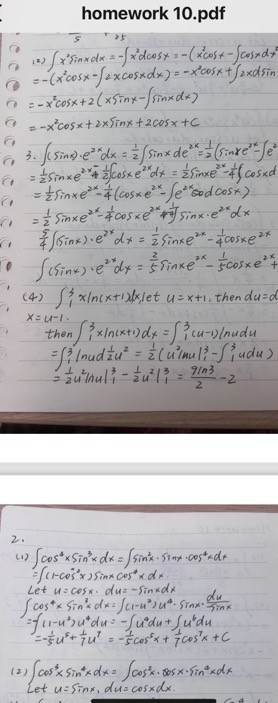 homework 10.pdf
(2) ∫x²sinxdx = -∫x²dcosx = -(x²cosx - ∫cosxdx²
= -(x²cosx - ∫2xcosxdx) = -x²cosx + ∫2xdsin
= -x²cosx + 2(xsinx - ∫sinxdx)
= -x²cosx + 2xsinx + 2cosx + C
3. ∫(sinx)·e²ˣdx = ½∫sinxde²ˣ = ½(sinxe²ˣ - ∫e²
= ½sinxe²ˣ - ½∫cosxe²ˣdx = ½sinxe²ˣ - ¼∫cosxd
= ½sinxe²ˣ - ¼(cosxe²ˣ - ∫e²ˣdcosx)
= ½sinxe²ˣ - ¼cosxe²ˣ - ¼∫sinx·e²ˣdx
5/4∫(sinx)·e²ˣdx = ½sinxe²ˣ - ¼cosxe²ˣ
∫(sinx)·e²ˣdx = 2/5 sinxe²ˣ - 1/5 cosxe²ˣ +
(4) ∫³₁ xln(x+1)dx, let u = x+1. then du = d
x = u-1.
then ∫³₁ xln(x+1)dx = ∫³₁ (u-1)lnudu
= ∫³₁ lnud½u² = ½(u²lnu|³₁ - ∫³₁ udu)
= ½u²lnu|³₁ - ½u²|³₁ = 9ln3/2 - 2
2.
(1) ∫cos⁴xsin³xdx = ∫sin²x·sinx·cos⁴xdx
= ∫(1-cos²x)sinxcos⁴xdx
Let u = cosx. du = -sinxdx
∫cos⁴xsin³xdx = ∫(1-u²)u⁴·sinx·du/-sinx
= -∫(1-u²)u⁴du = -∫u⁴du + ∫u⁶du
= -1/5u⁵ + 1/7u⁷ = -1/5cos⁵x + 1/7cos⁷x + C
(2) ∫cos³xsin⁴xdx = ∫cos²x·cosx·sin⁴xdx
Let u = sinx, du = cosxdx.